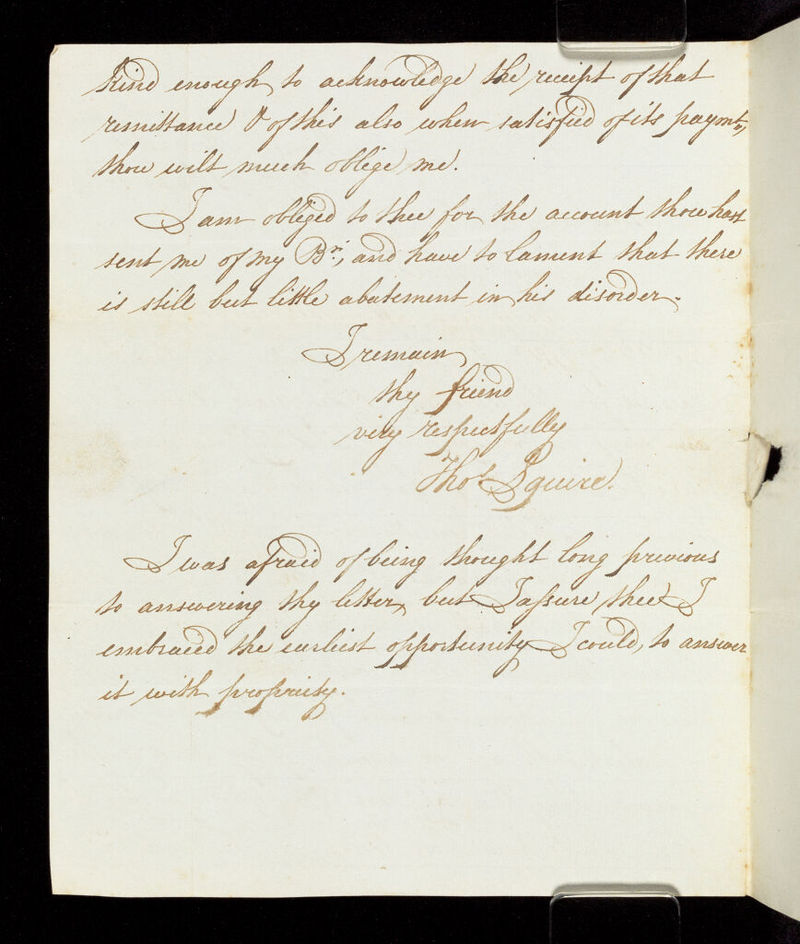 kind enough to acknowledge the receipt of that
remittance & of this also when satisfied of its paymt,
thou wilt much oblige me.
I am obliged to thee for the account thou hast
sent me of my Brr, and have to lament that there
is still but little abatement in his disorder.
I remain
thy friend
very respectfully
Thos Squire.
I was afraid of being thought long previous
to answering thy letter, but I assure thee I
embraced the earliest opportunity I could, to answer
it with propriety.